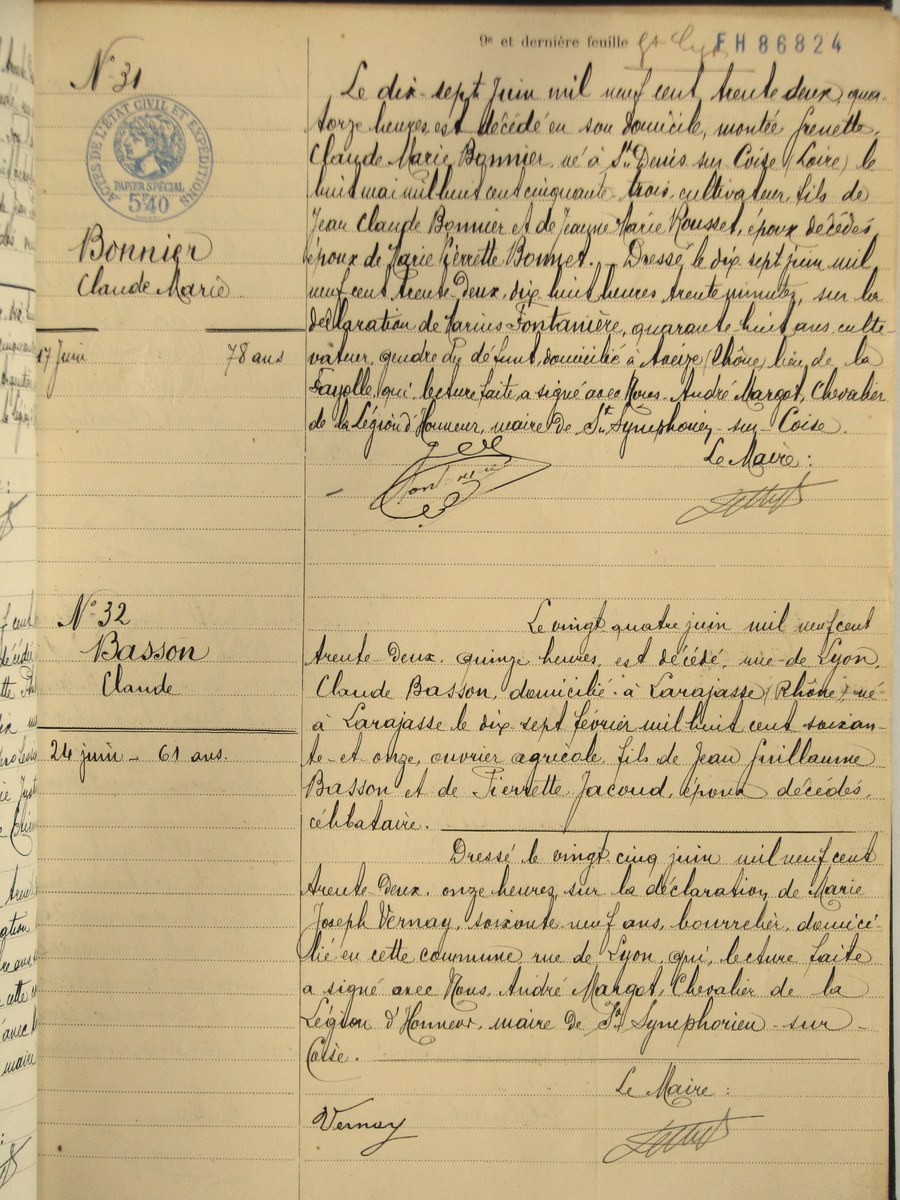 9e et dernière feuille
FH 86824
N° 31
ACTES DE L'ÉTAT CIVIL ET EXPÉDITIONS
PAPIER SPÉCIAL
5F40
Bonnier
Claude Marie
17 Juin 78 ans
Le dix-sept Juin mil neuf cent trente deux, qua-
torze heures est décédé en son domicile, montée Grenette,
Claude Marie Bonnier né à St Denis sur Coise (Loire) le
huit mai mil huit cent cinquante trois, cultivateur, fils de
Jean Claude Bonnier et de Jeanne Marie Rousset, époux décédés,
époux de Marie Pierrette Bonnet. - Dressé le dix sept juin mil
neuf cent trente-deux, dix huit heures trente minutes, sur la
déclaration de Marius Fontanière, quarante huit ans, culti-
vateur, gendre du défunt, domicilié à Aveize (Rhône) lieu de la
Fayolle, qui, lecture faite, a signé avec Nous. André Margot, Chevalier
de la Légion d'Honneur, maire de St Symphorien-sur-Coise.
Le Maire :
N° 32
Basson
Claude
24 juin - 61 ans.
Le vingt quatre juin mil neuf cent
trente deux, quinze heures, est décédé, rue de Lyon,
Claude Basson, domicilié à Larajasse (Rhône), né
à Larajasse le dix-sept février mil huit cent soixan-
te-et onze, ouvrier agricole, fils de Jean Guillaume
Basson et de Pierrette Jacoud, époux décédés,
célibataire.
Dressé le vingt cinq juin mil neuf cent
trente deux, onze heures, sur la déclaration de Marie
Joseph Vernay, soixante neuf ans, bourrelier, domici-
lié en cette commune rue de Lyon, qui, lecture faite
a signé avec Nous, André Margot, Chevalier de la
Légion d'Honneur, maire de St Symphorien-sur-
Coise.
Le Maire :
Vernay